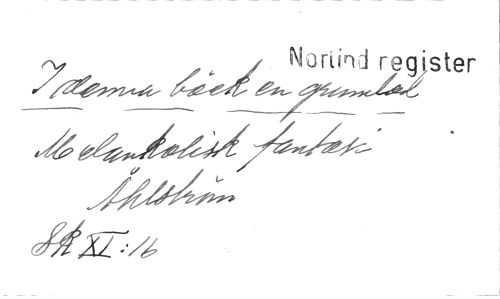 Norlind register
I denna bäck en grumlad
Melankolisk fantasi
Åhlström
Sk XI:16